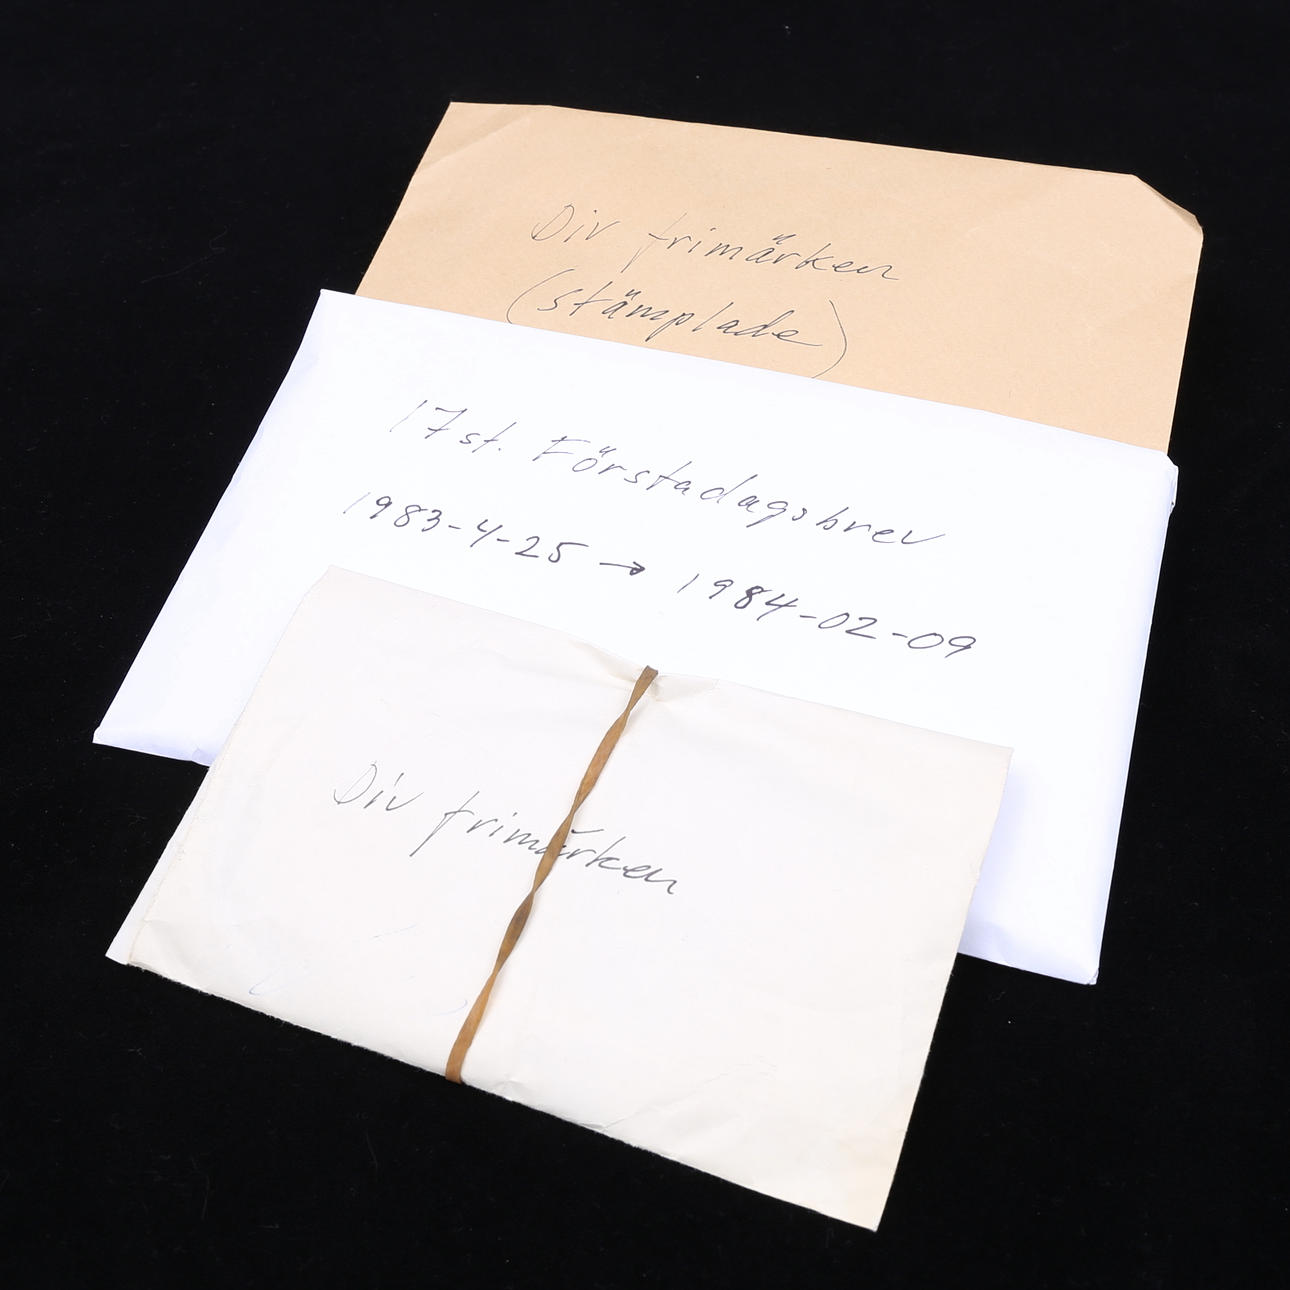 Div frimärken
(stämplade)
17 st. Förstadagsbrev
1983-4-25 → 1984-02-09
Div frimärken